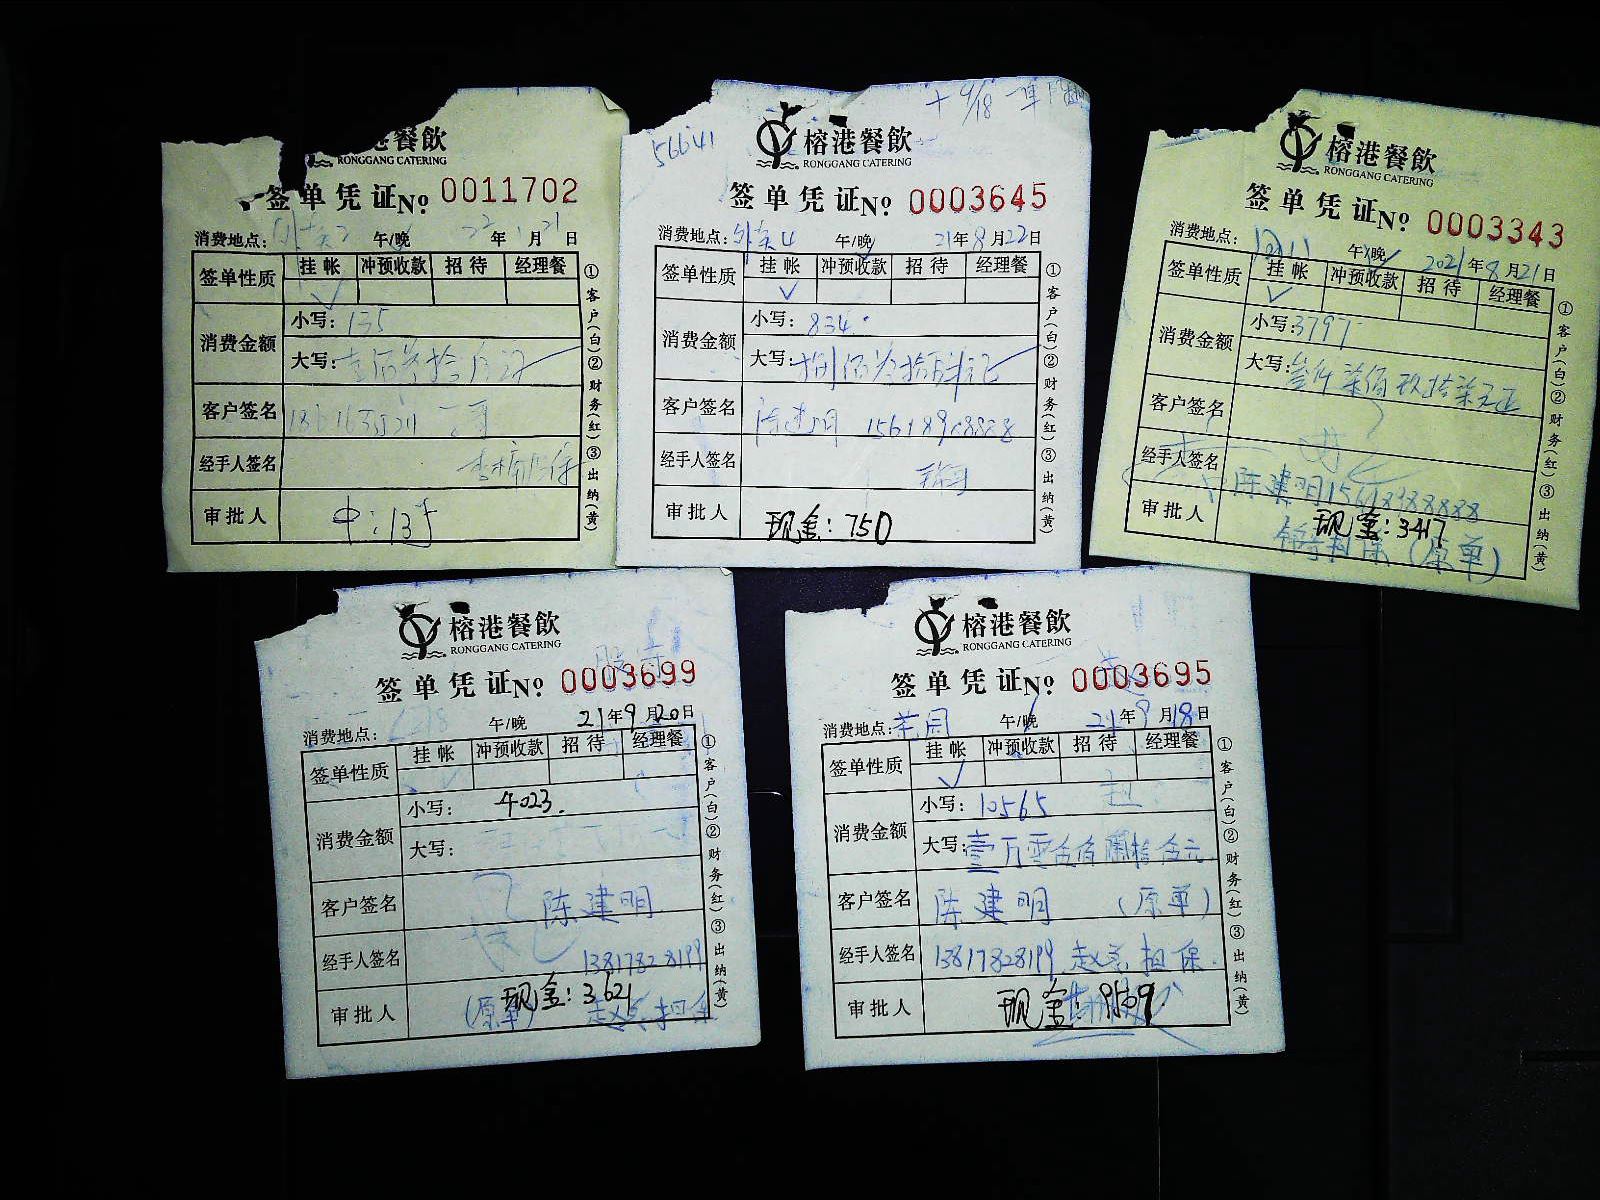 餐飲
RONGGANG CATERING
签单凭证№ 0011702
消费地点: 午/晚 22年1月21日
签单性质 挂帐 冲预收款 招待 经理餐
消费金额 小写: 135
大写: 壹佰叁拾伍元
客户签名
经手人签名
审批人 中: 135
①客户(白)②财务(红)③出纳(黄)
+ 9/18 一单
56641
榕港餐飲
RONGGANG CATERING
签单凭证№ 0003645
消费地点: 午/晚 21年8月22日
签单性质 挂帐 冲预收款 招待 经理餐
消费金额 小写: 834
大写: 捌佰叁拾肆元
客户签名 陈建明
经手人签名
审批人 现金: 750
①客户(白)②财务(红)③出纳(黄)
榕港餐飲
RONGGANG CATERING
签单凭证№ 0003343
消费地点: 午/晚 2021年8月21日
签单性质 挂帐 冲预收款 招待 经理餐
消费金额 小写: 3797
大写: 叁仟柒佰玖拾柒元正
客户签名
经手人签名 陈建明15618388888
审批人 现金: 3417
担保(原单)
①客户(白)②财务(红)③出纳(黄)
榕港餐飲
RONGGANG CATERING
签单凭证№ 0003699
消费地点: 午/晚 21年9月20日
签单性质 挂帐 冲预收款 招待 经理餐
消费金额 小写: 4023.
大写:
客户签名 陈建明
经手人签名 13817828199
审批人 现金: 3621
(原单) 担保
①客户(白)②财务(红)③出纳(黄)
榕港餐飲
RONGGANG CATERING
签单凭证№ 0003695
消费地点: 午/晚 21年9月18日
签单性质 挂帐 冲预收款 招待 经理餐
消费金额 小写: 10565
大写: 壹万零伍佰陆拾伍元
客户签名 陈建明 (原单)
经手人签名 13817828199 担保
审批人 现金: 9509
①客户(白)②财务(红)③出纳(黄)